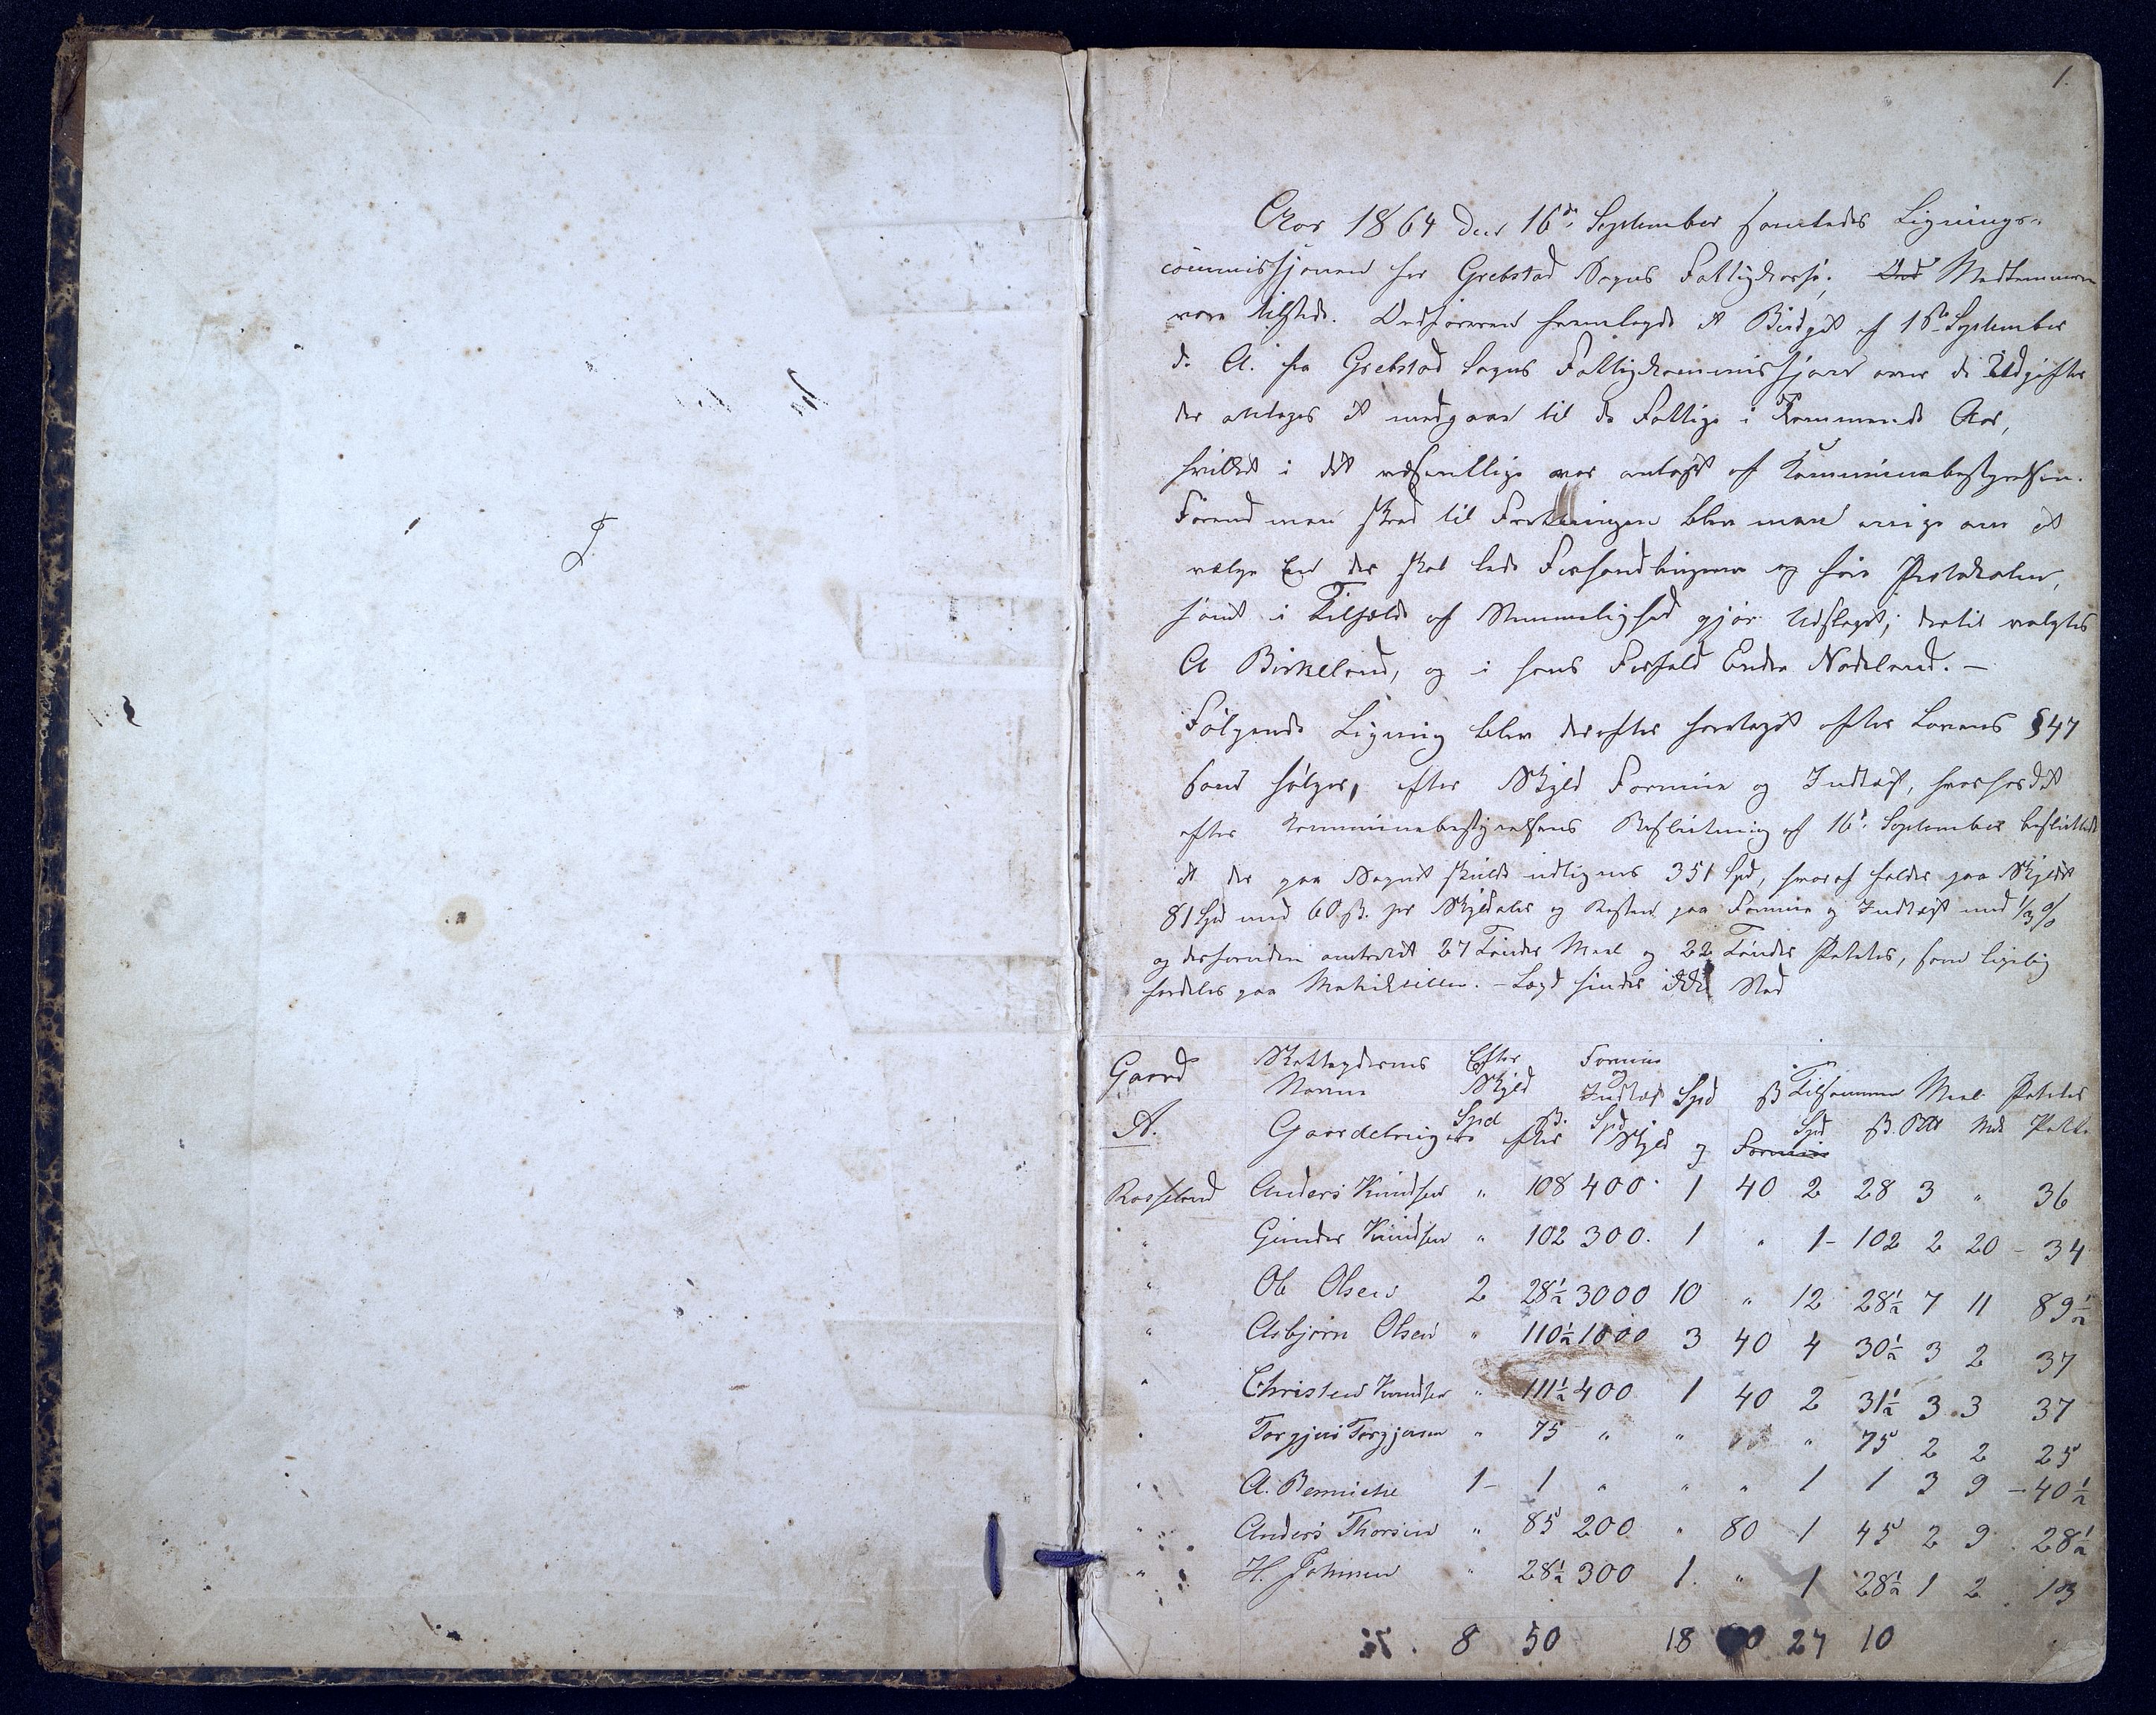 1.
Aar 1864 den 16de September samledes Lignings-
commissjonen for Grebstad Sogns Fattigkasse; Medlemmerne
vare tilstede. Ordføreren fremlagde et Budget af 15de September
d. A. fra Grebstad Sogns Fattigkommissjon over de Udgifter
der antages at medgaae til de Fattige i Kommende Aar,
hvilket i det væsentlige var antaget af Kommunebestyrelsen.
Førend man skred til Forretningen blev man enige om at
vælge En der skal lede Forhandlingerne og føre Protokolen,
samt i Tilfælde af Stemmelighed gjør Udslaget; dertil valgtes
A Birkeland, og i hans Forfald Endre Nodeland. —
Følgende Ligning blev derefter foretaget efter Lovens § 47
som følger, efter Skyld Formue og Indtægt, hvorfor det
efter Kommunebestyrelsens Beslutning af 16de September besluttedes
at der paa Sognet skulde udlignes 351 Spd, hvoraf falder paa Skylden
81 Spd med 60 ß. pr Skylddaler og Resten paa Formue og Indtægt med 1/3 %
og desforuden omtrent 27 Tønder Meel og 22 Tønder Poteter, som ligelig
fordeles paa Matrikullen. — Lægd finder ikke Sted
Gaard Skatteydernes Navne Efter Skyld Formue og Indtægt Spd ß Tilsammen Meel Poteter
Spd ß. Spd Spd ß. Ptt Mk Potter
A. Gaardbrugere efter Skyld og Formue
Rosseland Anders Knudsen " 108 400 1 40 2 28 3 " 36
" Gunder Knudsen " 102 300. 1 " 1 - 102 2 20 - 34
" Ole Olsen 2 28½ 3000 10 " 12 28½ 7 11 89½
" Asbjørn Olsen " 110½ 1000 3 40 4 30½ 3 2 37
" Christen Knudsen " 111½ 400 1 40 2 31½ 3 3 37
" Torgjus Torgjusen " 75 " " " " 75 2 2 25
" A. Benniche 1 - 1 " " " 1 1 3 9 - 40½
" Anders Thorsen " 85 200 " 80 1 45 2 9 28½
" H. Johnsen " 28½ 300 1. " 1 28½ 1 2 13
8 50 18 27 10